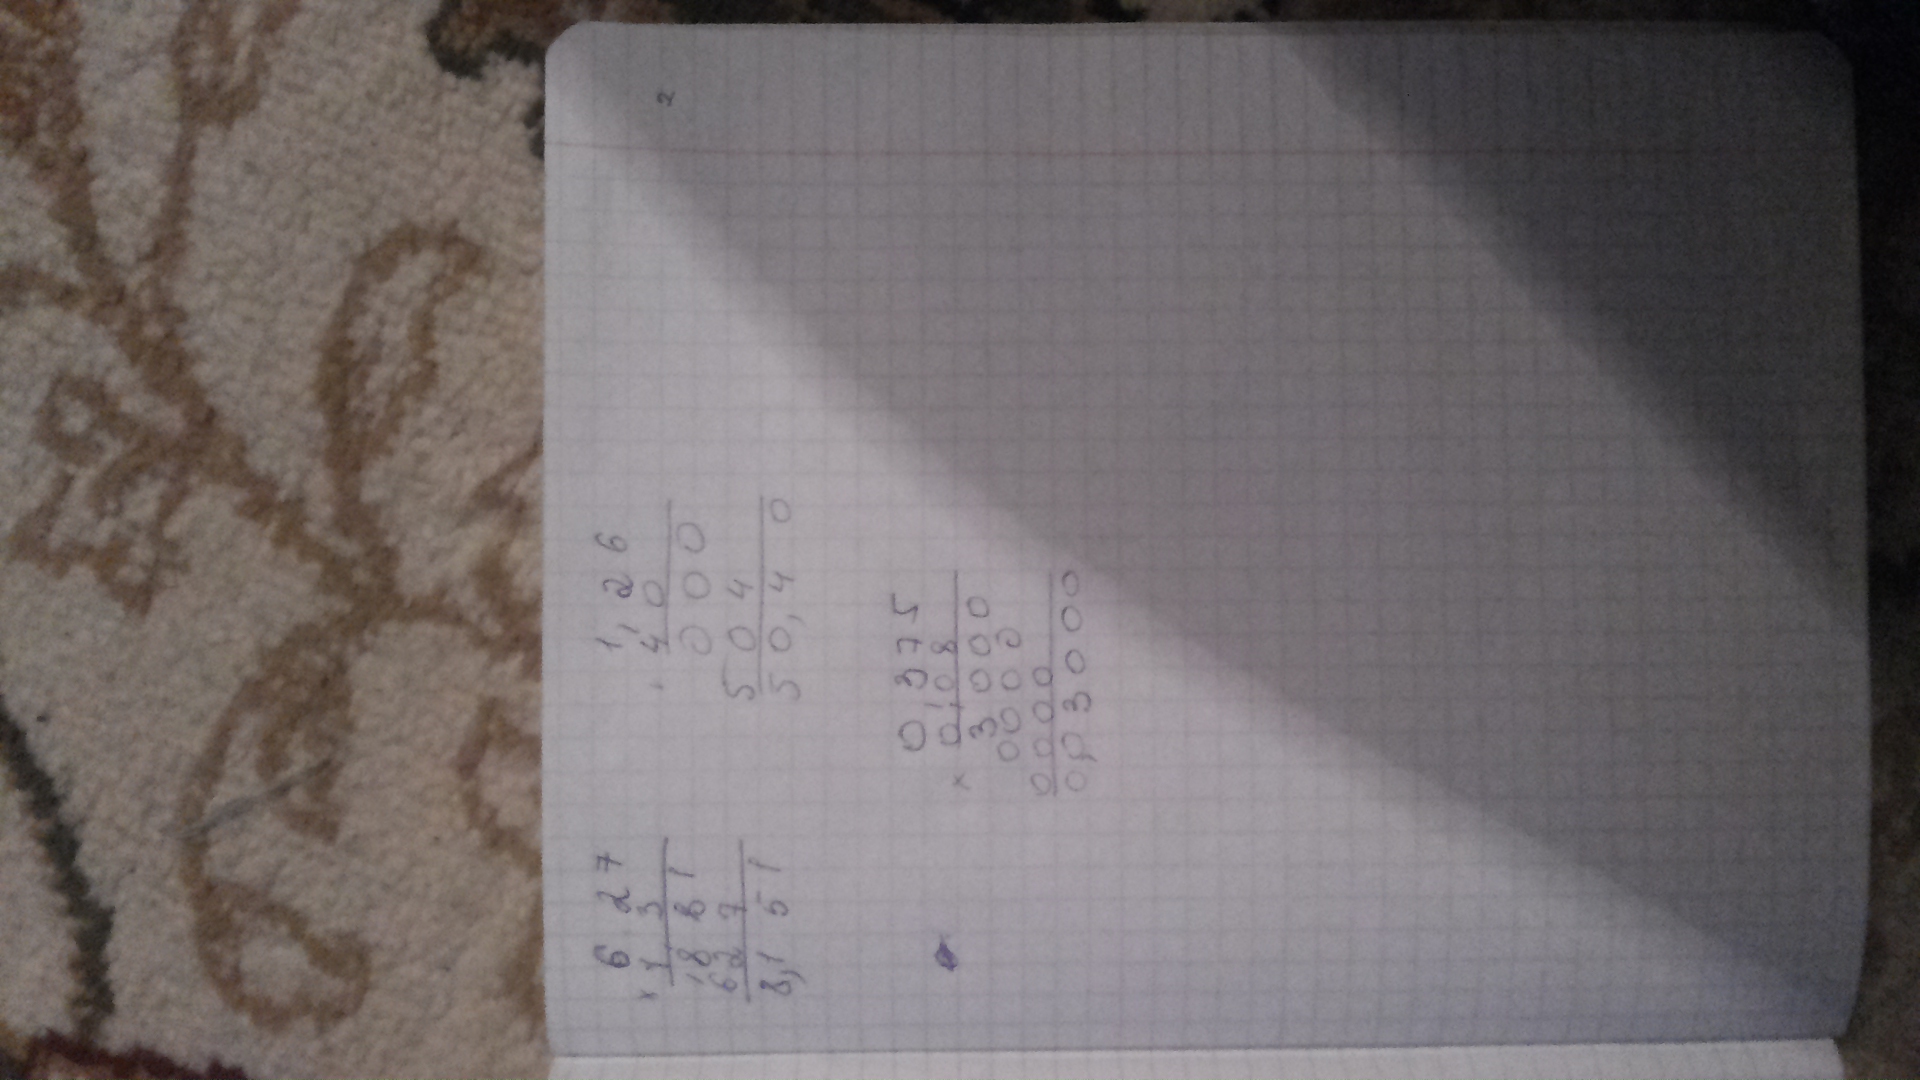 2
6 2 7
× 1, 3
1 8 8 1
6 2 7
8, 1 5 1
1, 2 6
· 4 0
0 0 0
5 0 4
5 0, 4 0
0 3 7 5
× 0, 0 8
3 0 0 0
0 0 0 0
0 0 0 0
0, 0 3 0 0 0